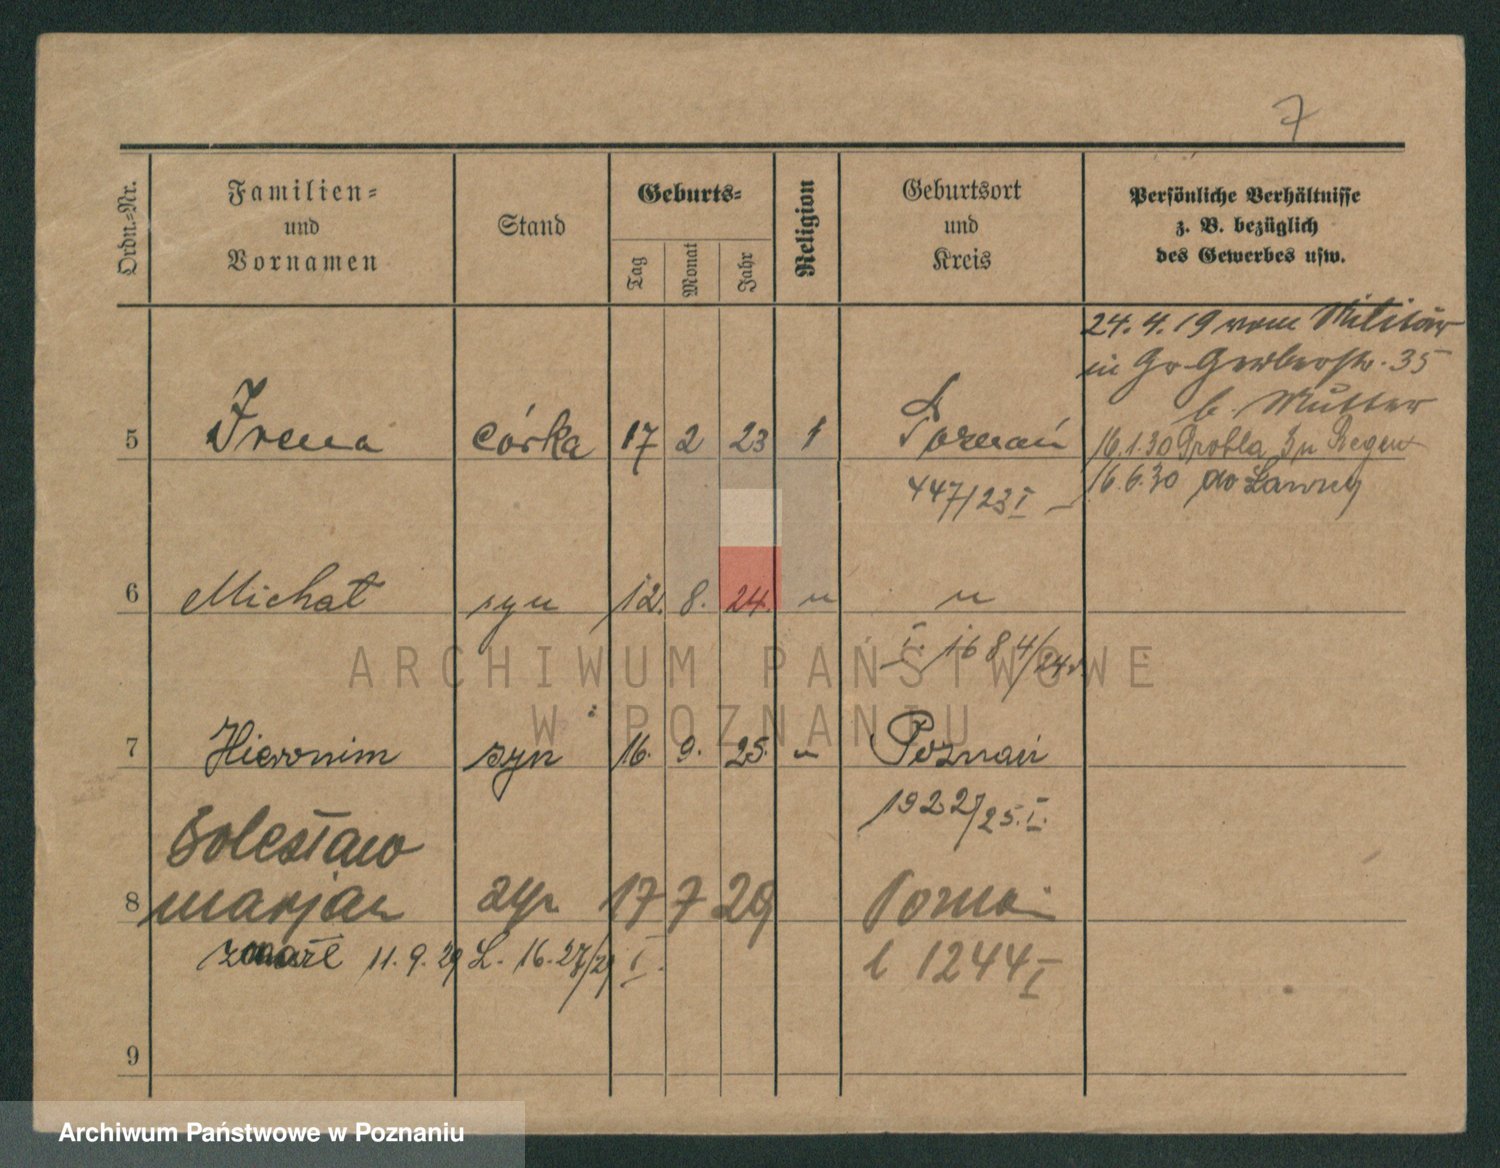 7
Ordn.-Nr.
Familien-
und
Vornamen
Stand
Geburts-
Tag
Monat
Jahr
Religion
Geburtsort
und
Kreis
Persönliche Verhältnisse
z. B. bezüglich
des Gewerbes usw.
24. 4. 19 vom Militär
in Gr. Gerberstr. 35
b. Mutter
5 Irena córka 17 2 23 1 Poznań
16.1.30 Grobla
447/23 I
16.6.30 do Ławicy
6 Michał syn 12. 8. 24. " "
I. 1684/24
7 Hieronim syn 16. 9. 25. " Poznań
1922/25. I.
Bolesław
8 Marjan syn 17 7 29 Poznań
zmarł 11. 9. 29 L. 16.27/29 I.
l 1244 I
9
ARCHIWUM PAŃSTWOWE
W POZNANIU
Archiwum Państwowe w Poznaniu